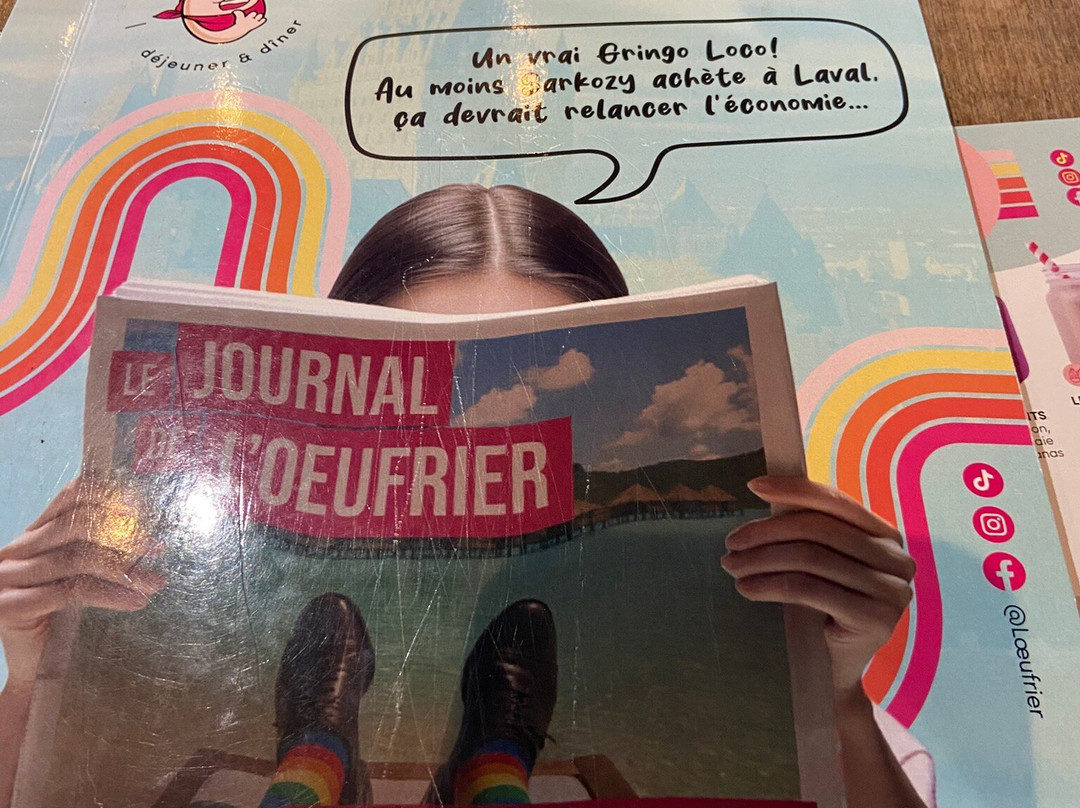 déjeuner & dîner
Un vrai Gringo Loco!
Au moins Sarkozy achète à Laval,
ça devrait relancer l'économie...
LE JOURNAL
DE L'OEUFRIER
@Lœufrier
ITS
on,
aie
anas